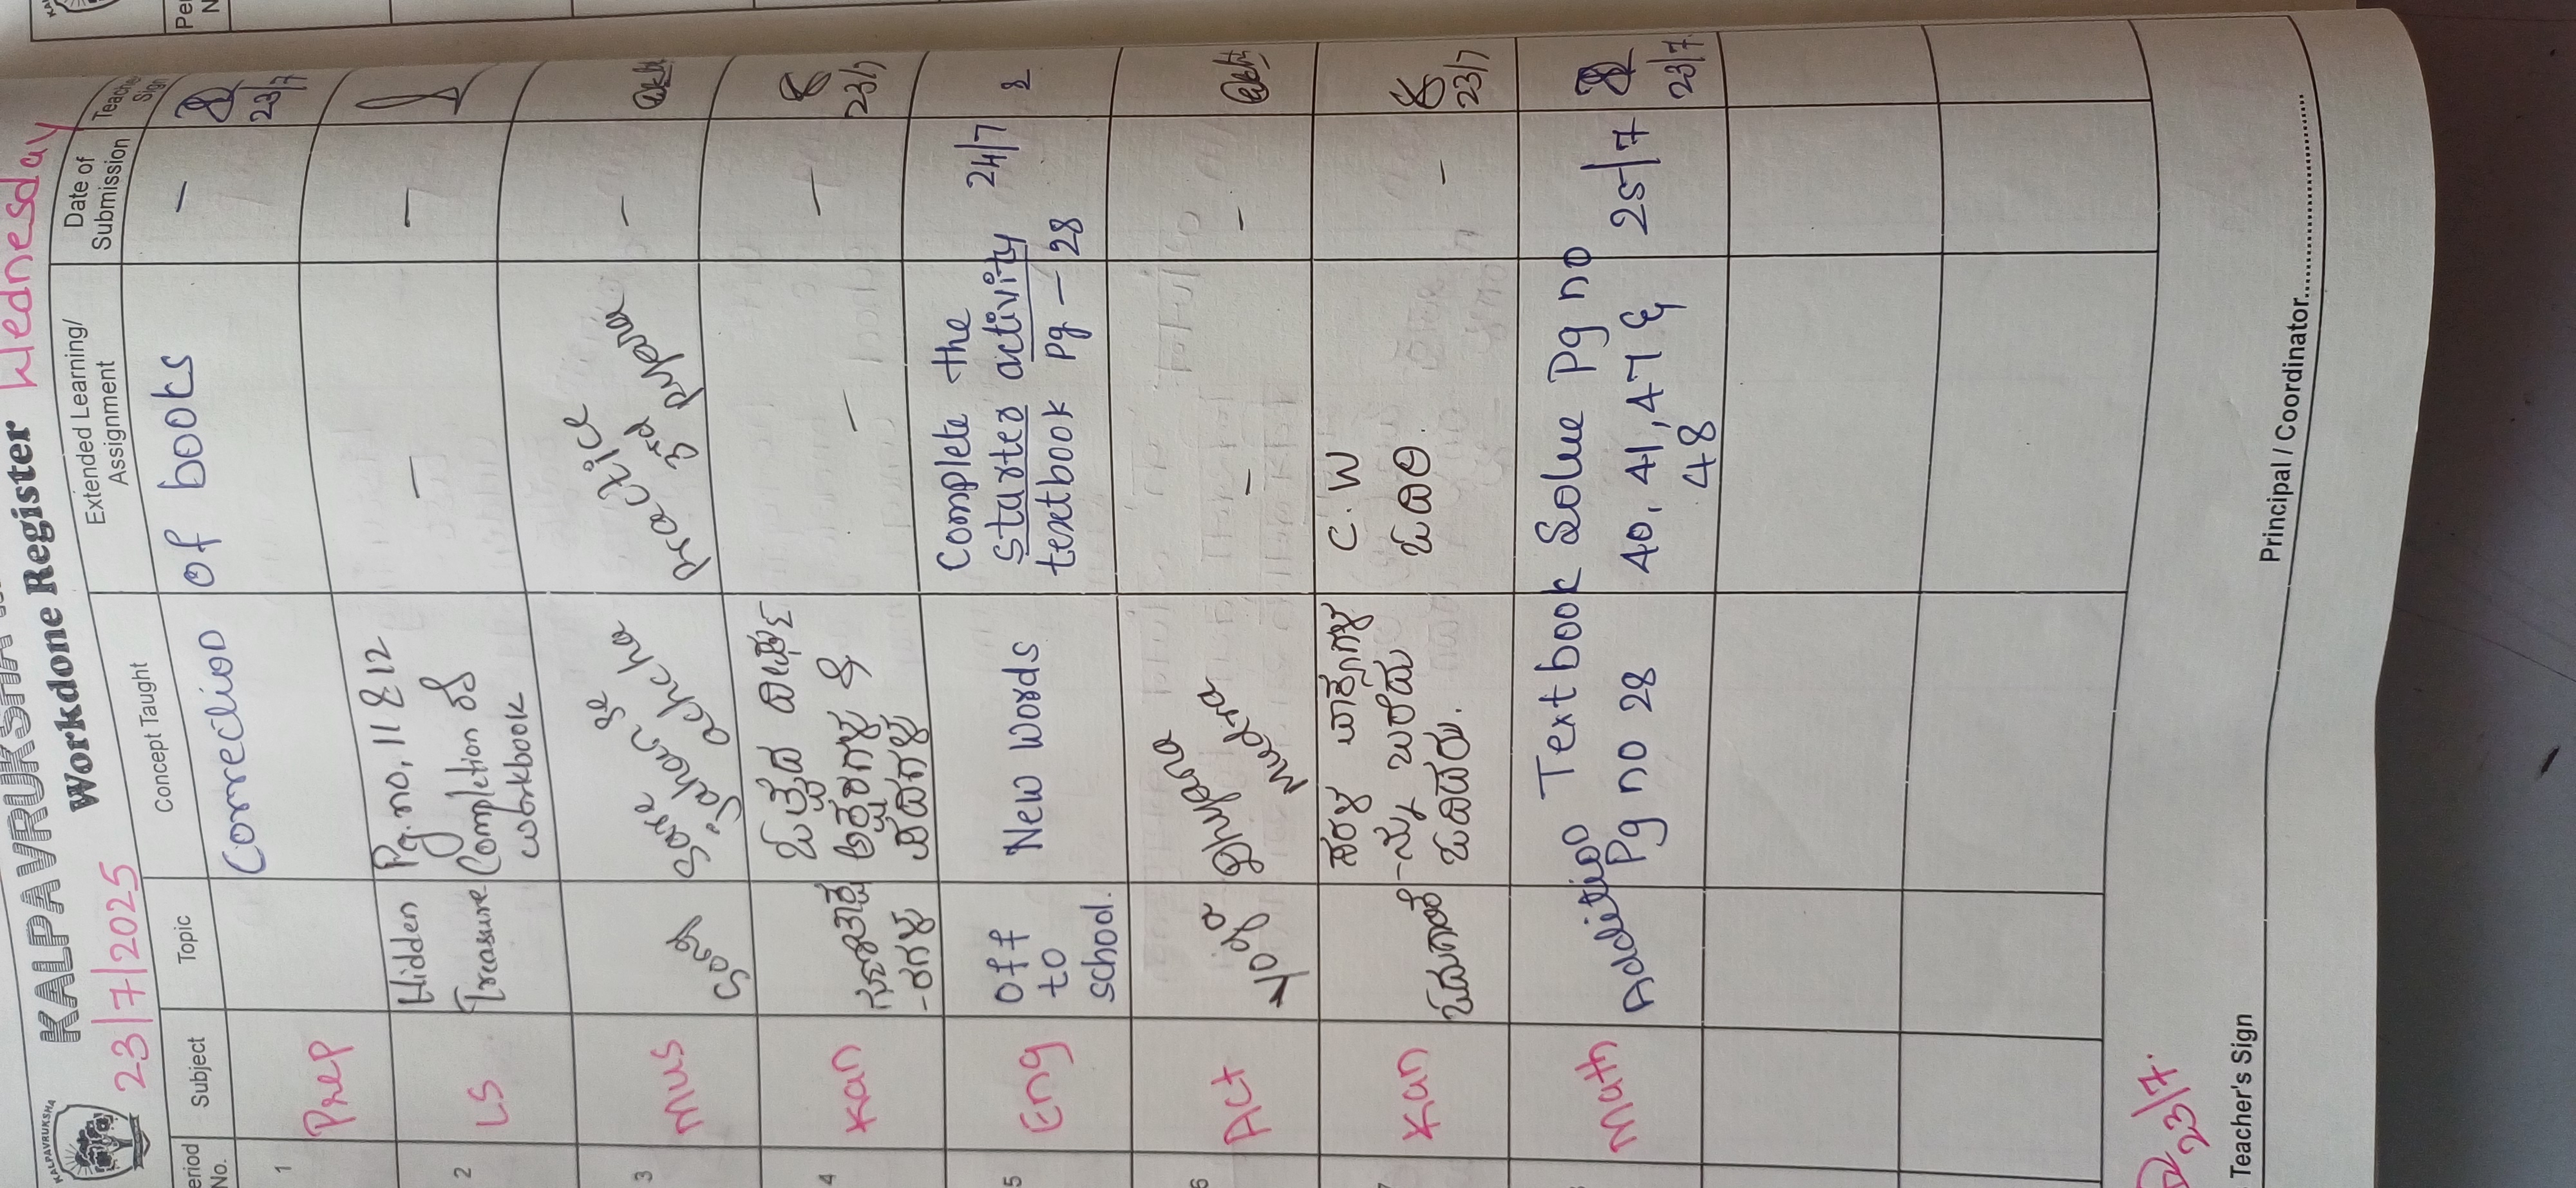 KALPAVRUKSHA
KALPAVRUKSHA
Workdone Register
23/7/2025 Wednesday
Period No. Subject Topic Concept Taught Extended Learning/ Assignment Date of Submission Teacher Sign
1 Prep Correction of books – 23/7
2 LS Hidden Treasure Pg.no, 11 & 12
Completion of
workbook – –
3 Mus Song Sare
Jahan se
achcha Practice
3rd –
4 Kan ಒತ್ತಿದ ದೀರ್ಘ
ಅಕ್ಷರಗಳ &
ಪದಗಳು – – 23/7
5 Eng Off
to
school. New words Complete the
starter activity
textbook Pg – 28 24/7
6 Act yoga mudra – –
7 Kan ಸರಳ ವಾಕ್ಯಗಳ
-ನ್ನು ಬರೆದು
ಓದಿದರು. C.W
ಓದಿರಿ. – 23/7
Math Addition Textbook
Pg no 28 Solve Pg no
40, 41, 47 &
48 25/7 23/7
23/7.
Teacher's Sign Principal / Coordinator